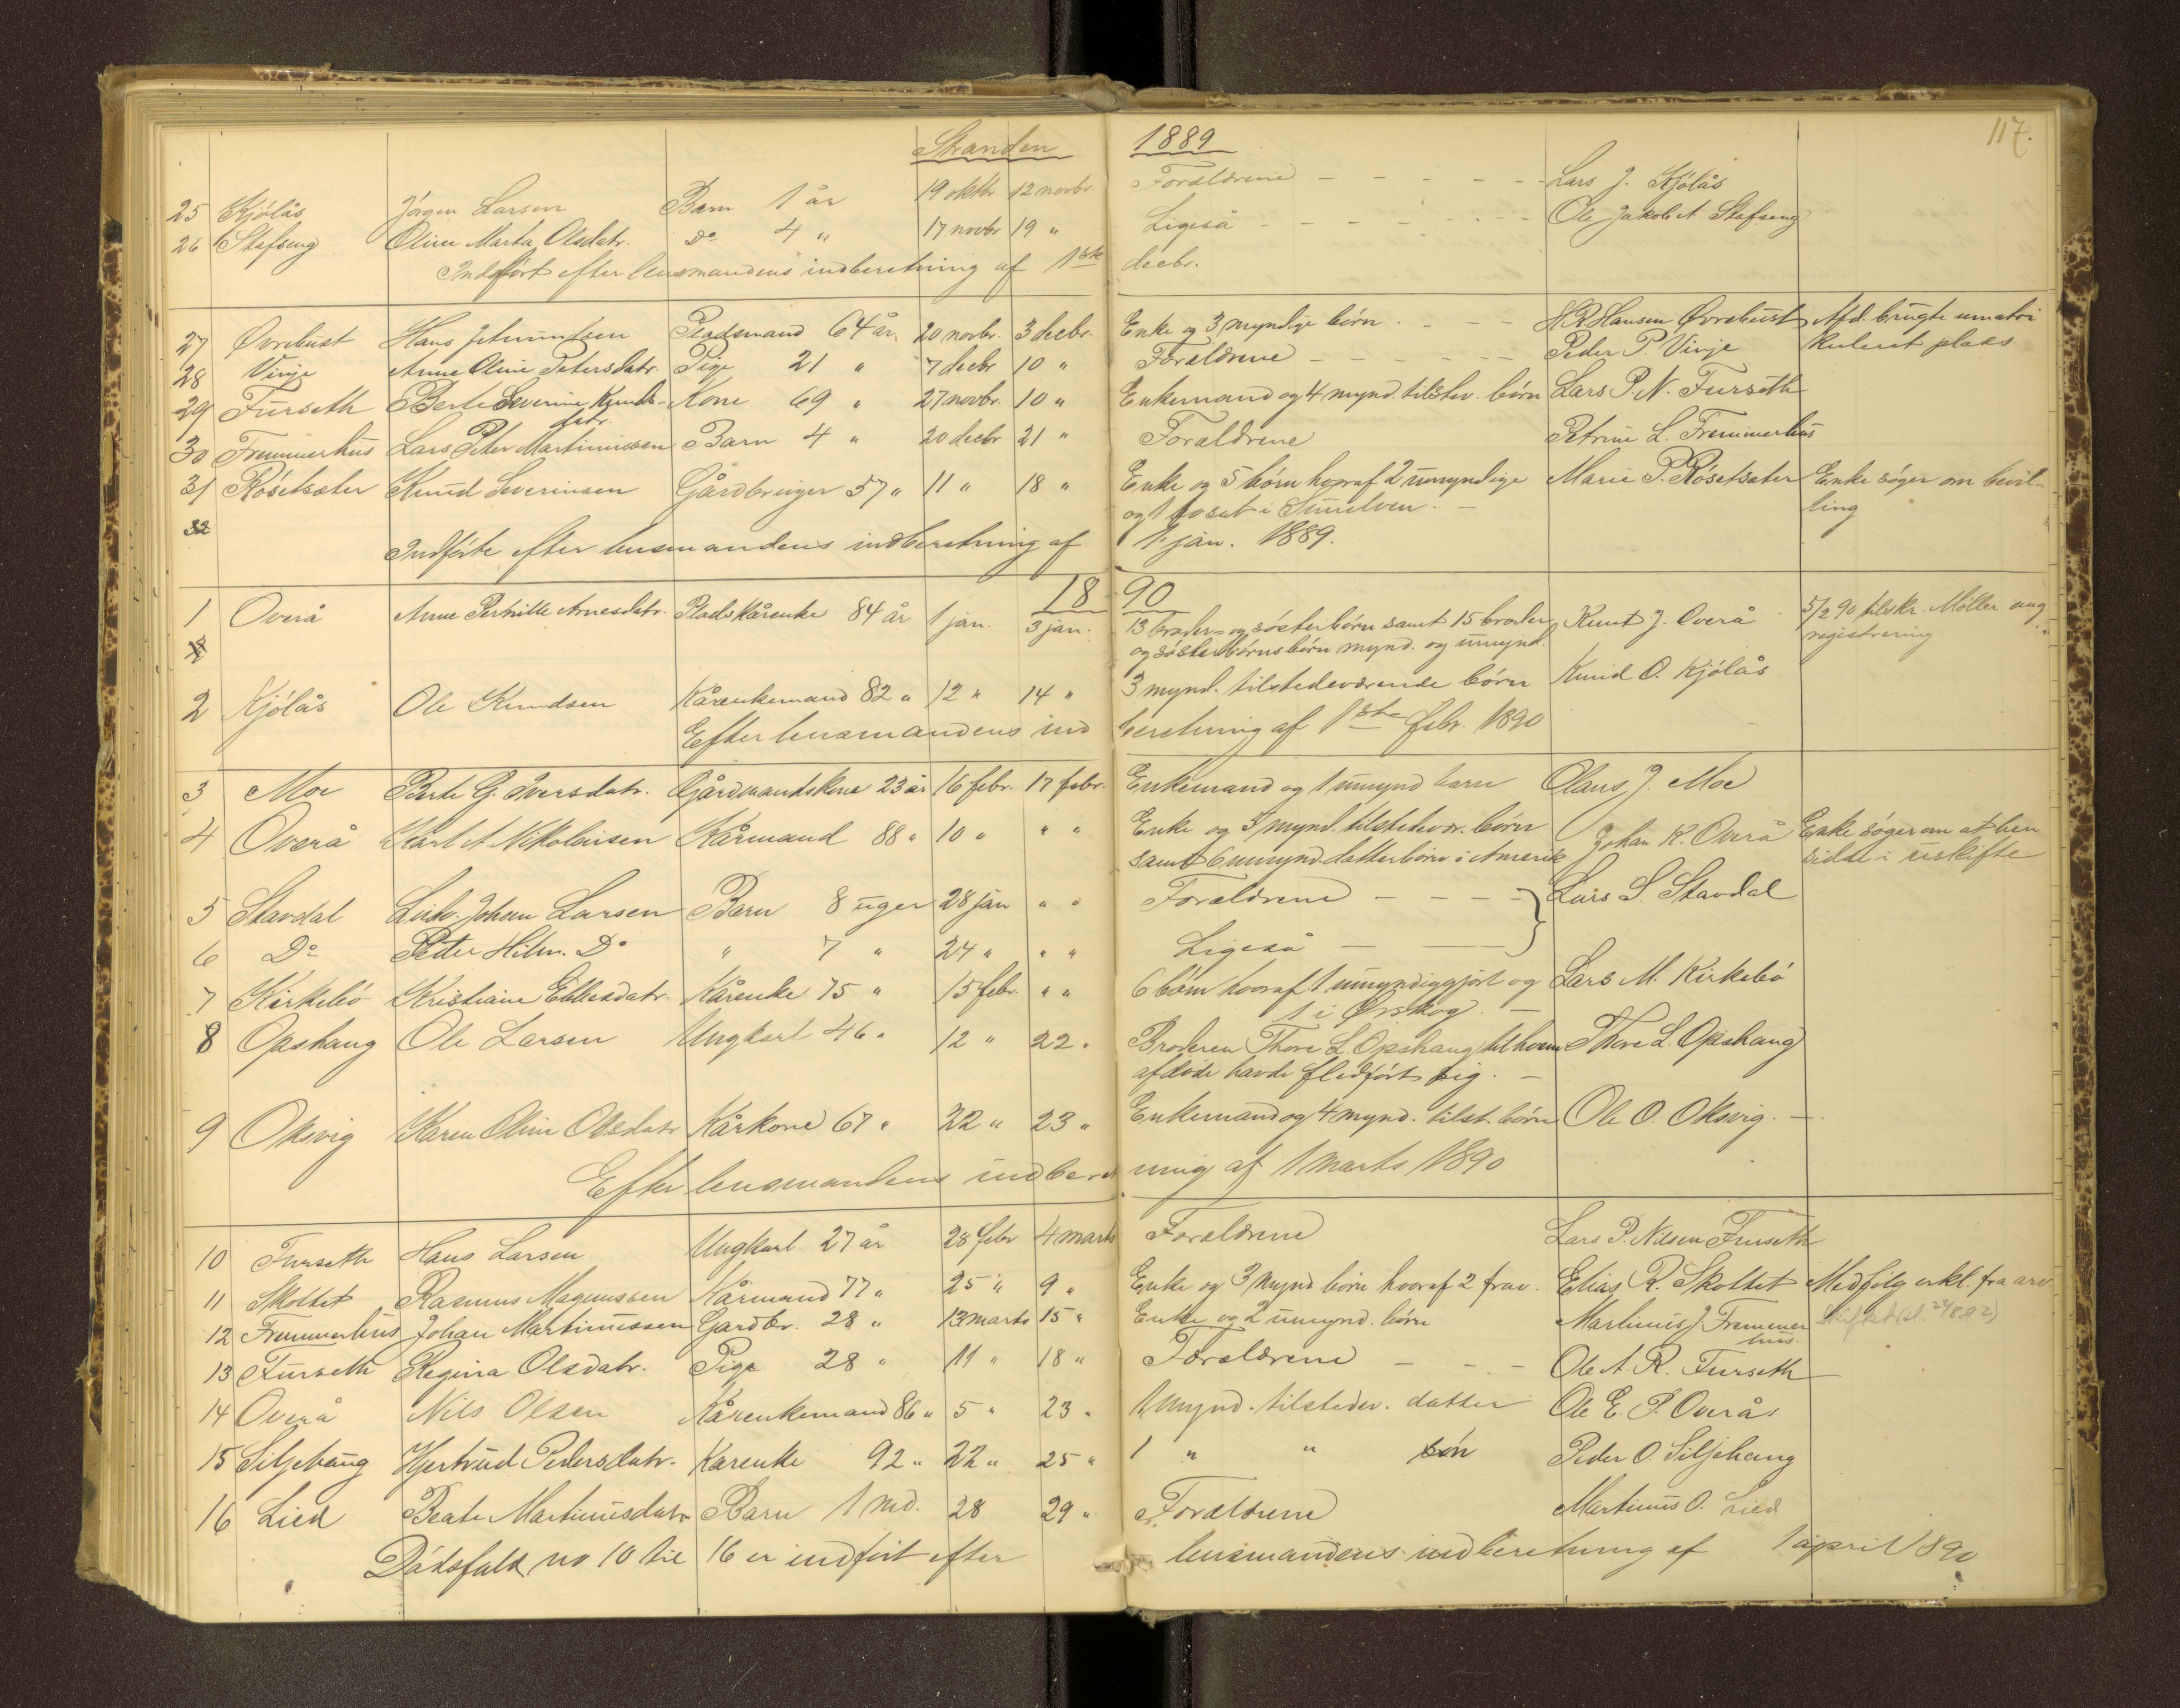 117.
Stranden 1889
25 Kjölås Jörgen Larsen Barn 1 år 19 oktbr. 12 novbr. Forældrene - - - - - Lars J. Kjölås
26 Stafseng Oline Marta Olsdatr. Do 4 " 17 novbr 19 " Ligeså - - - - - Ole Jakob A. Stafseng
Indfört efter lensmandens indberetning af 1ste decbr.
27 Øvrebust Hans Pladsmand 64 år 20 novbr. 3 decbr. Enke og 3 myndige börn - - - H R Hansen Øvrebust Afd. brugte umatri
kuleret plads
28 Vinje Anne Oline Petersdatr. Pige 21 " 7 decbr 10 " Forældrene - - - - - Peder P. Vinje
29 Furseth Berte Severine Knuds- Kone 69 " 27 novbr. 10 " Enkemand og 4 mynd. tilstev. börn Lars P. N. Furseth
datr.
30 Fremmerhus Lars Peter Martinussen Barn 4 " 20 decbr 21 " Forældrene Petrine L. Fremmerhus
31 Rösetsæter Knud Severinsen Gårdbruger 57 " 11 " 18 " Enke og 5 börn hvoraf 2 umyndige Marie P. Rösetsæter Enke söger om bevil-
og 1 bosat i Sunelven. - ling
32
Indförte efter lensmandens indberetning af 1 jan. 1889.
1890
1 Overå Anne Pernille Arnesdatr. Pladskårenke 84 år 1 jan. 3 jan. 13 broder- og sösterbörn samt 15 broder Knut J. Overå 5/2 90 tilskr. Möller ang.
og sösterbörnsbörn mynd. og umynd. registrering
2 Kjölås Ole Knudsen Kårenkemand 82 " 12 " 14 " 3 mynd. tilstedeværende börn Knud O. Kjölås
Efter lensmandens indberetning af 1ste febr. 1890
3 Moe Berte G. Iversdatr. Gårdmandskone 23 år 16 febr. 17 febr. Enkemand og 1 umynd barn Claus J. Moe
4 Overå Karl A. Nikolaisen Kårmand 88 " 10 " " " Enke og 3 mynd. tilstedevær. börn Johan K. Overå Enke söger om at hen
samt 6 umynd. datterbörn i Amerik sidde i uskifte
5 Stavdal Johan Larsen Barn 8 uger 28 jan " " Forældrene - - - - Lars S. Stavdal
6 Do Petter Hilm. Do " 7 " 24 " " " Ligeså - -
7 Kirkebö Kristiane Ellesdatr. Kårenke 75 " 15 febr. " " 6 börn hvoraf 1 umyndiggjort og Lars M. Kirkebö
1 i Ørskog. -
8 Opshaug Ole Larsen Ungkarl 46 " 12 " 22 " Broderen Thore L. Opshaug, til hvem Thore L. Opshaug
afdöde havde fledfört sig. -
9 Oksvig Karen Oline Olsdatr Kårkone 67 " 22 " 23 " Enkemand og 4 mynd. tilst. börn Ole O. Oksvig. -
Efter lensmandens indberetning af 1 marts 1890
10 Furseth Hans Larsen Ungkarl 27 år 28 febr 4 marts Forældrene Lars P. Nilsen Furseth
11 Skottet Rasmus Magnussen Kårmand 77 " 25 " 9 " Enke og 3 mynd börn hvoraf 2 frav. Elias R. Skottet Medfölg erkl. fra arv
12 Fremmerhus Johan Martinussen Gårdbr. 28 " 13 marts 15 " Enke og 2 umynd. börn Martinus J. Fremmer
hus.
13 Furseth Regina Olsdatr. Pige 28 " 11 " 18 " Forældrene - - - Ole A. R. Furseth
14 Overå Nils Olsen Kårenkemand 86 " 5 " 23 " 1 mynd. tilstedev. datter Ole E. P. Overå
15 Siljehaug Hjertrud Pedersdatr. Kårenke 92 " 22 " 25 " 1 " " sön Peder O. Siljehaug
16 Lied Beate Martinusdatr Barn 1 md. 28 29 " Forældrene Martinus O. Lied
Dödsfald no 10 til 16 er indfört efter lensmandens indberetning af 1 april 1890